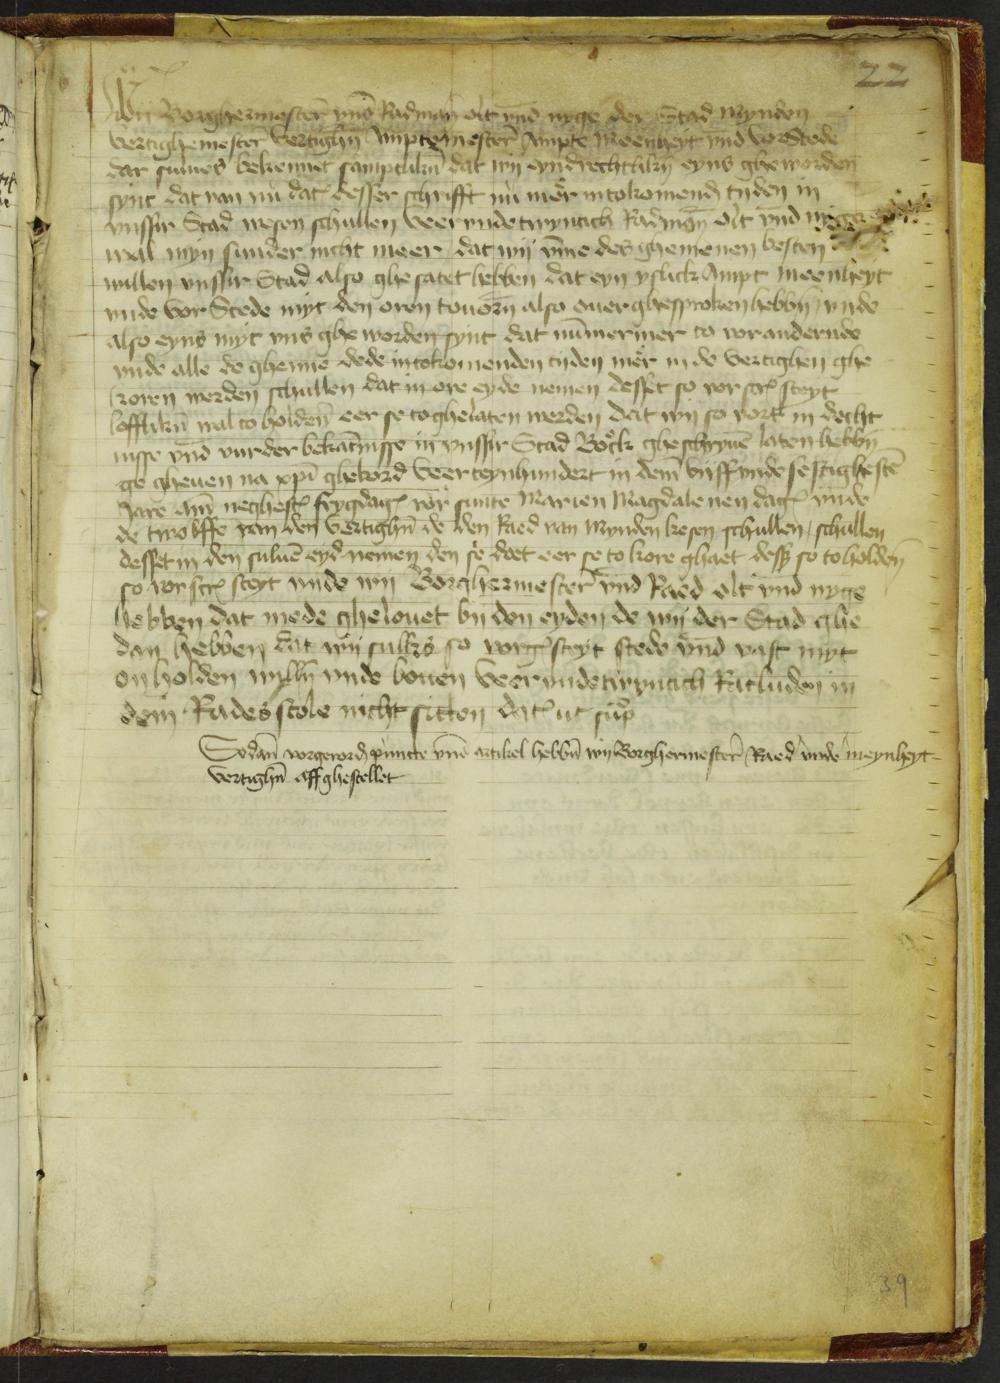 22
Wij Borghermester vnd Radman olt vnd nyge der Stad Mynden
vertighemester vertighn Ampte mester Ampte Meenheyt vnd vorstede
dar sulues bekennet sampclikn dat wij eyndrechtlikn eyns gheworden
synt dat van nu dat desser schrifft nu mer in tokomend tyden in
vnsser Stad wesen schullen veervndetwyntich Radman olt vnd nyge
wal myn sunder nicht meer dat wij vme des ghemenen besten
willen vnsser Stad also ghesatet hebben dat eyn yslick Ampt meenheyt
vnde vor Stede myt den oren touorn also ouerghesproken hebbn vnde
also eyns myt vns gheworden synt dat numermer to vorandernde
vnde alle de ghenne dede in tokomenden tijden mer in de vertighen ghe
koren werden schullen dat in ore eyde nemen desset so vorscr steyt
loffliken wal to holden eer se to ghelaten werden dat wij so vort in decht
nisse vnd vurder bekatnisse in vnsser Stad Bock gheschryue laten hebbn
ge gheuen na xpi ghebord veerteynhundert in dem viffvndesestighesten
Jare Am neghest frygdag vor sunte Marien Magdalenen dag vnde
de twolffe van den vertighn de den Raed van Mynden kesen schullen / schullen
desset in den suluen eyd nemen den se doet eer se to kore ghaet dess so to holden
so vorscr steyt vnde wij Borghermester vnd Raed olt vnd nyge
hebben dat mede ghelouet by den eyden de wij der Stad ghe
dan hebben dat wij sulks so vorg steyt stede vnd vast myt
on holden willn vnde bouen veervndetwyntich Ratluden in
dem Rades stole nicht sitten dat ut sup
Sodan vorgerord puncte vnd artikel hebbn wij Borghermester Raed vnde meynheyt
vertighn affghestellet
39